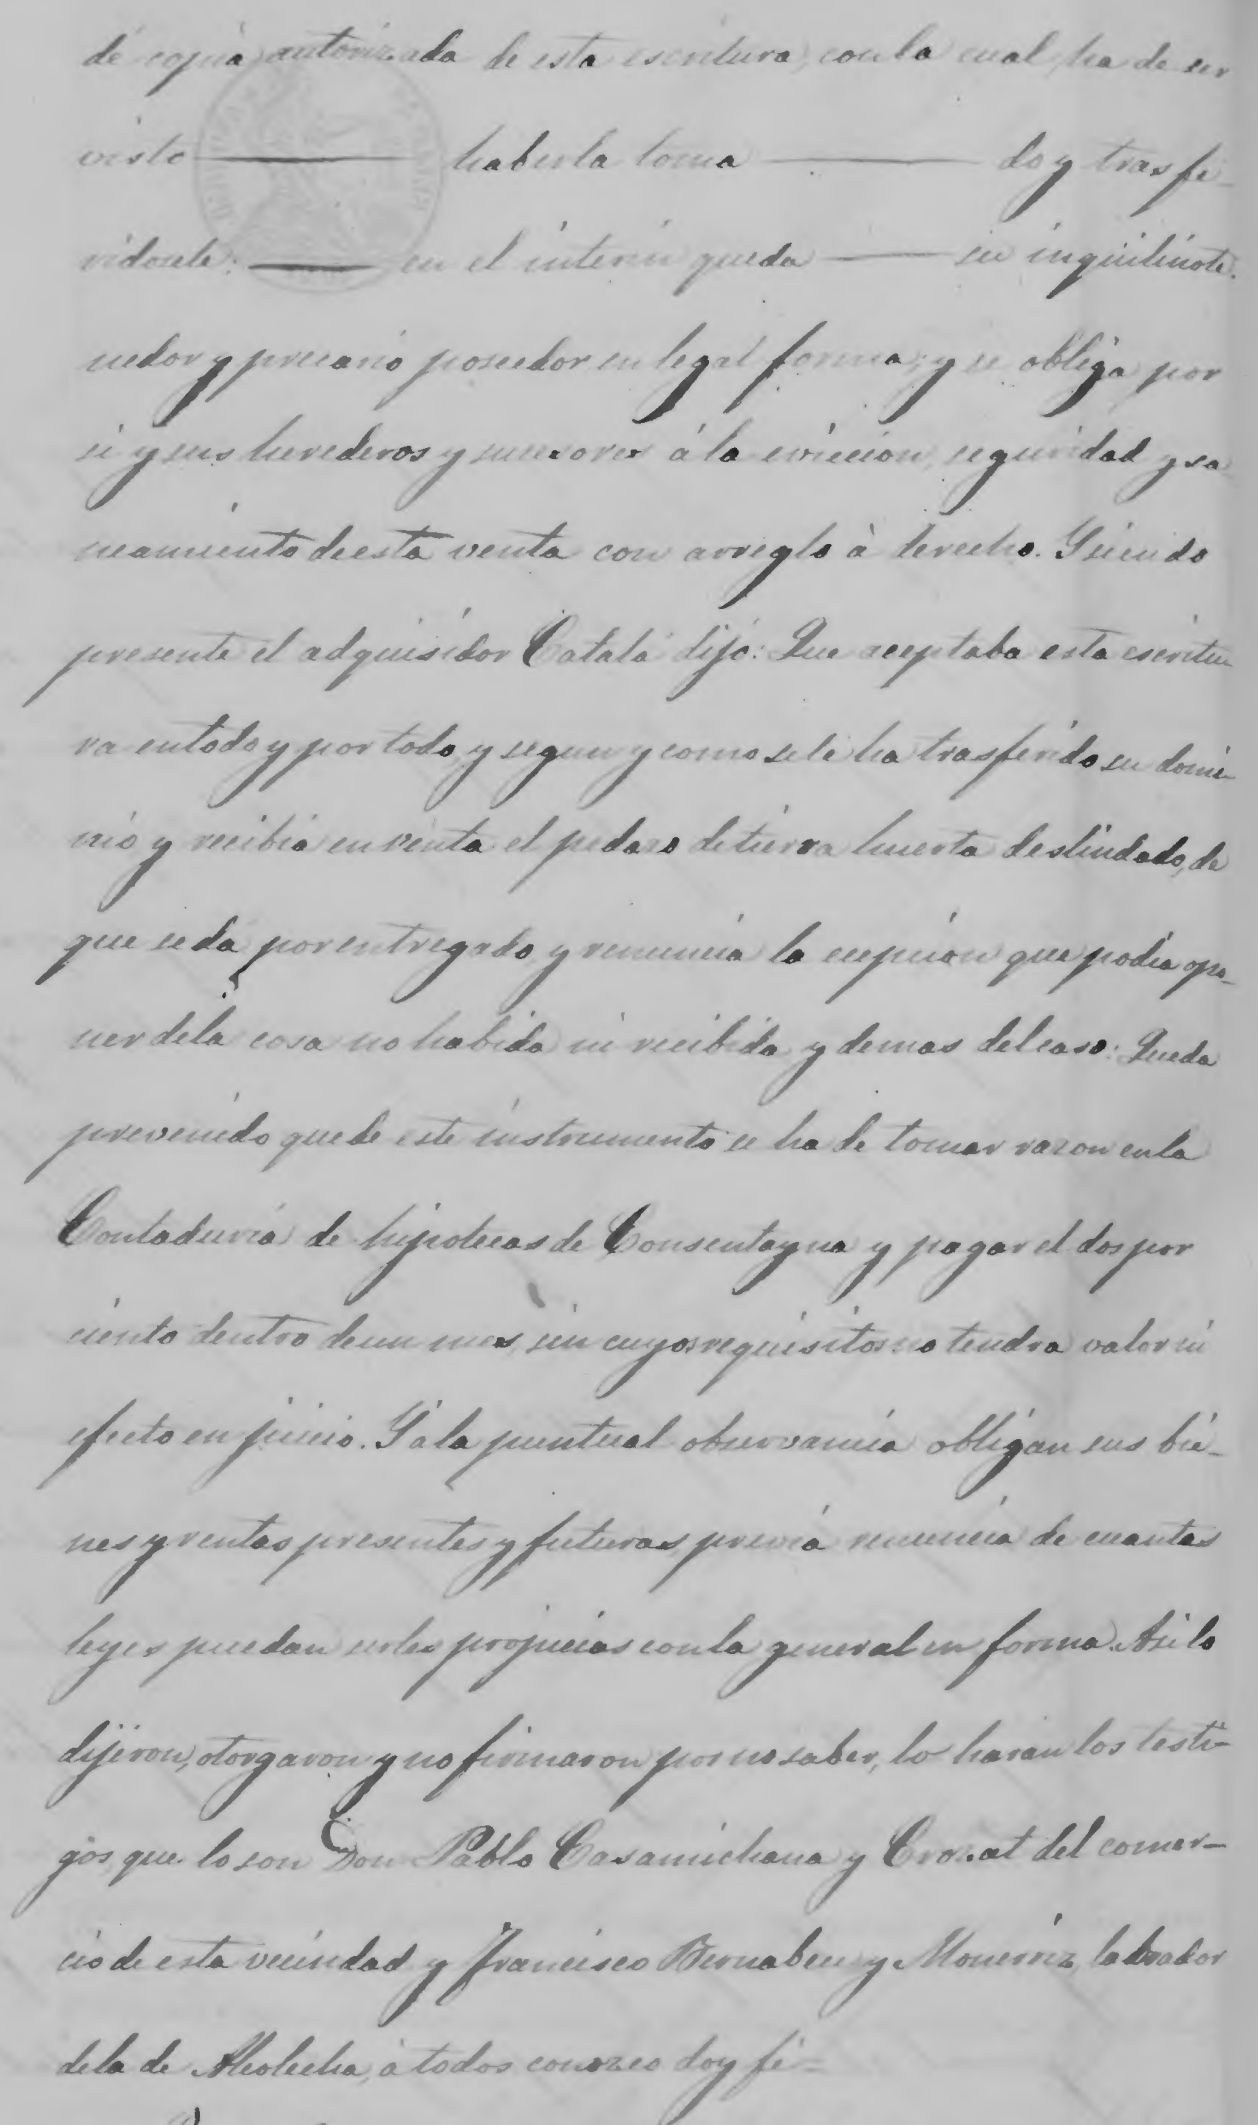 dé copia autorizada de esta escritura, con la cual, ha de ser
visto ——— haberla toma ——— do y trasfe-
ridosele: ——— en el interin queda ——— su inquilino te-
nedor y precario poseedor en legal forma; y se obliga por
si y sus herederos y sucesores á la eviccion, seguridad y sa
neamiento de esta venta con arreglo à derecho. Y siendo
presente el adquisidor Catalá dijo: Que aceptaba esta escritu-
ra en todo y por todo, y segun y como se le ha trasferido su domi-
nio y recibia en venta el pedazo de tierra huerta deslindado, de
que se da por entregado, y renuncia la ecepcion que podia opo-
ner de la cosa no habida ni recibida y demas del caso: Queda
prevenido que de este instrumento se ha de tomar razon en la
Contaduria de hipotecas de Consentayna y pagar el dos por
ciento dentro de un mes, sin cuyos requisitos no tendra valor ni
efecto en juicio. Y á la puntual observancia obligan sus bie-
nes y rentas presentes y futuras, previa renuncia de cuantas
leyes puedan serles propicias con la general en forma. Asi lo
dijeron, otorgaron y no firmaron por no saber, lo harán los testi-
gos que lo son Don Pablo Casamichana y Crozat del comer-
cio de esta vecindad y Francisco Bernabeu y Monerriz, labrador
de la de Alcolecha, à todos conozco doy fé =